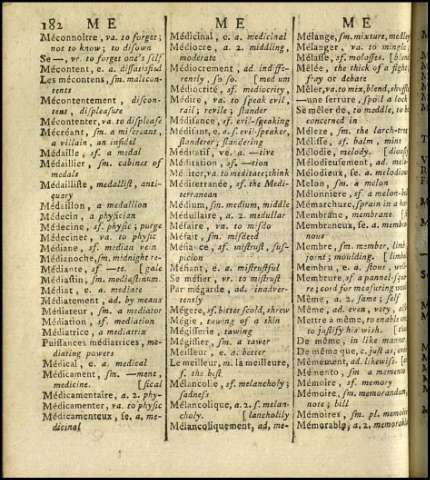 182 M E
M E
M E
Méconnoître, va. to forget;
not to know; to disown
Se —, vr. to forget one's self
Mécontent, e. a. dissatisfied
Les mécontens, sm. malecon-
tents
Mécontentement, discon-
tent, displeasure
Mécontenter, va. to displease
Mécréant, sm. a miscreant,
a villain, an infidel
Médaille, sf. a medal
Médaillier, sm. cabinet of
medals
Médailliste, medallist, anti-
quary
Médaillon, a medallion
Médecin, a physician
Médecine, sf. physic; purge
Médeciner, va. to physic
Médiane, sf. median vein
Médianoche, sm. midnight re-
Médiante, sf. —te. [gale
Médiastin, sm. mediastinum.
Médiat, e. a. mediate
Médiatement, ad. by means
Médiateur, sm. a mediator
Médiation, sf. mediation
Médiatrice, a mediatrix
Puissances médiatrices, me-
diating powers
Médical, e. a. medical
Médicament, sm. —ment,
medicine. [sical
Médicamentaire, a. 2. phy-
Médicamenter, va. to physic
Médicamenteux, se. a. me-
dicinal
Médicinal, e. a. medicinal
Médiocre, a. 2. middling,
moderate
Médiocrement, ad. indiffe-
rently, so so. [medium
Médiocrité, sf. mediocrity,
Médire, va. to speak evil,
rail; revile; slander
Médisance, sf. evil-speaking
Médisant, e. a. s. evil-speaker,
slanderer; slandering
Méditatif, ve. a. —tive
Méditation, sf. —tion
Méditer, va. to meditate; think
Méditerranée, sf. the Medi-
terranean
Médium, sm. medium, middle
Médullaire, a. 2. medullar
Méfaire, va. to misdo
Méfait, sm. misdeed
Méfiance, sf. mistrust, sus-
picion
Méfiant, e. a. mistrustful
Se méfier, vr. to mistrust
Par mégarde, ad. inadver-
tently
Mégère, sf. bitter scold, shrew
Mégie, tawing of a skin
Mégisserie, tawing
Mégissier, sm. a tawer
Meilleur, e. a. better
Le meilleur, m. la meilleure,
f. the best
Mélancolie, sf. melancholy;
sadness
Mélancolique, a. 2. s. melan-
choly. [lancholily
Mélancoliquement, ad. me-
Mélange, sm. mixture, medley
Mélanger, va. to mingle;
Mélasse, sf. molosses. [blend
Mêlée, the thick of a fight,
fray or debate
Mêler, va. to mix, blend, shuffle
—une serrure, spoil a lock
Se mêler de, to meddle, to be
concerned in
Mélèze, sm. the larch-tree
Mélisse, sf. balm, mint
Mélodie, melody.
Mélodieusement, ad. melo-
Mélodieux, se. a. melodious
Melon, sm. a melon
Melonnière, sf. a melon-bed
Mémarchure, sprain in a horse
Membrane, membrane
Membraneux, se. a. membra-
nous
Membre, sm. member, limb,
joint; moulding. [limbed
Membru, e. a. stout, well
Membrure, sf. a pannel square;
re; cord for measuring wood
Même, a. 2. same; self
Même, ad. even, very,
Mettre à même, to enable one
to justify his wish.
De même, in like manner
De même que, c. just as,
Mêmement, ad. likewise
Mémento, sm. a memento
Mémoire, sf. memory
Mémoire, sm. memorandum,
note; bill
Mémoires, sm. pl. memoirs
Mémorable, a. 2. memorable